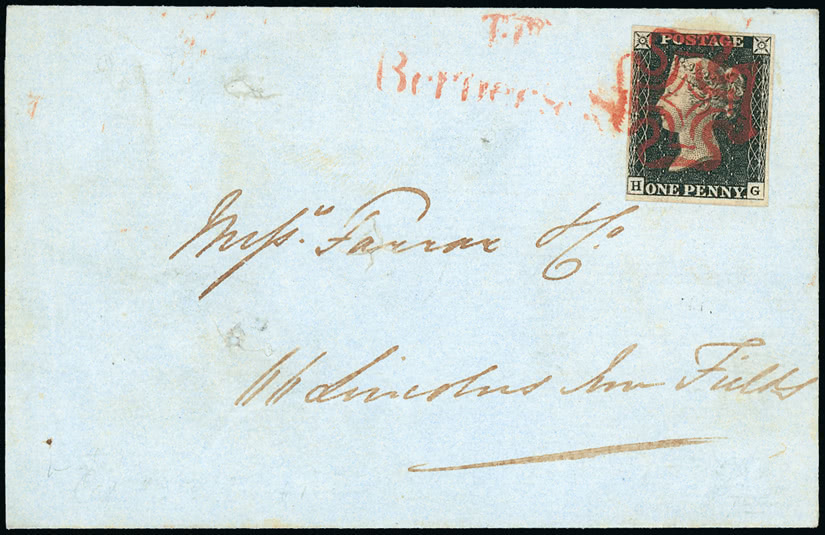 T.P
Berners St
POSTAGE
H ONE PENNY. G
Messrs. Farrer & Co
66 Lincolns Inn Fields